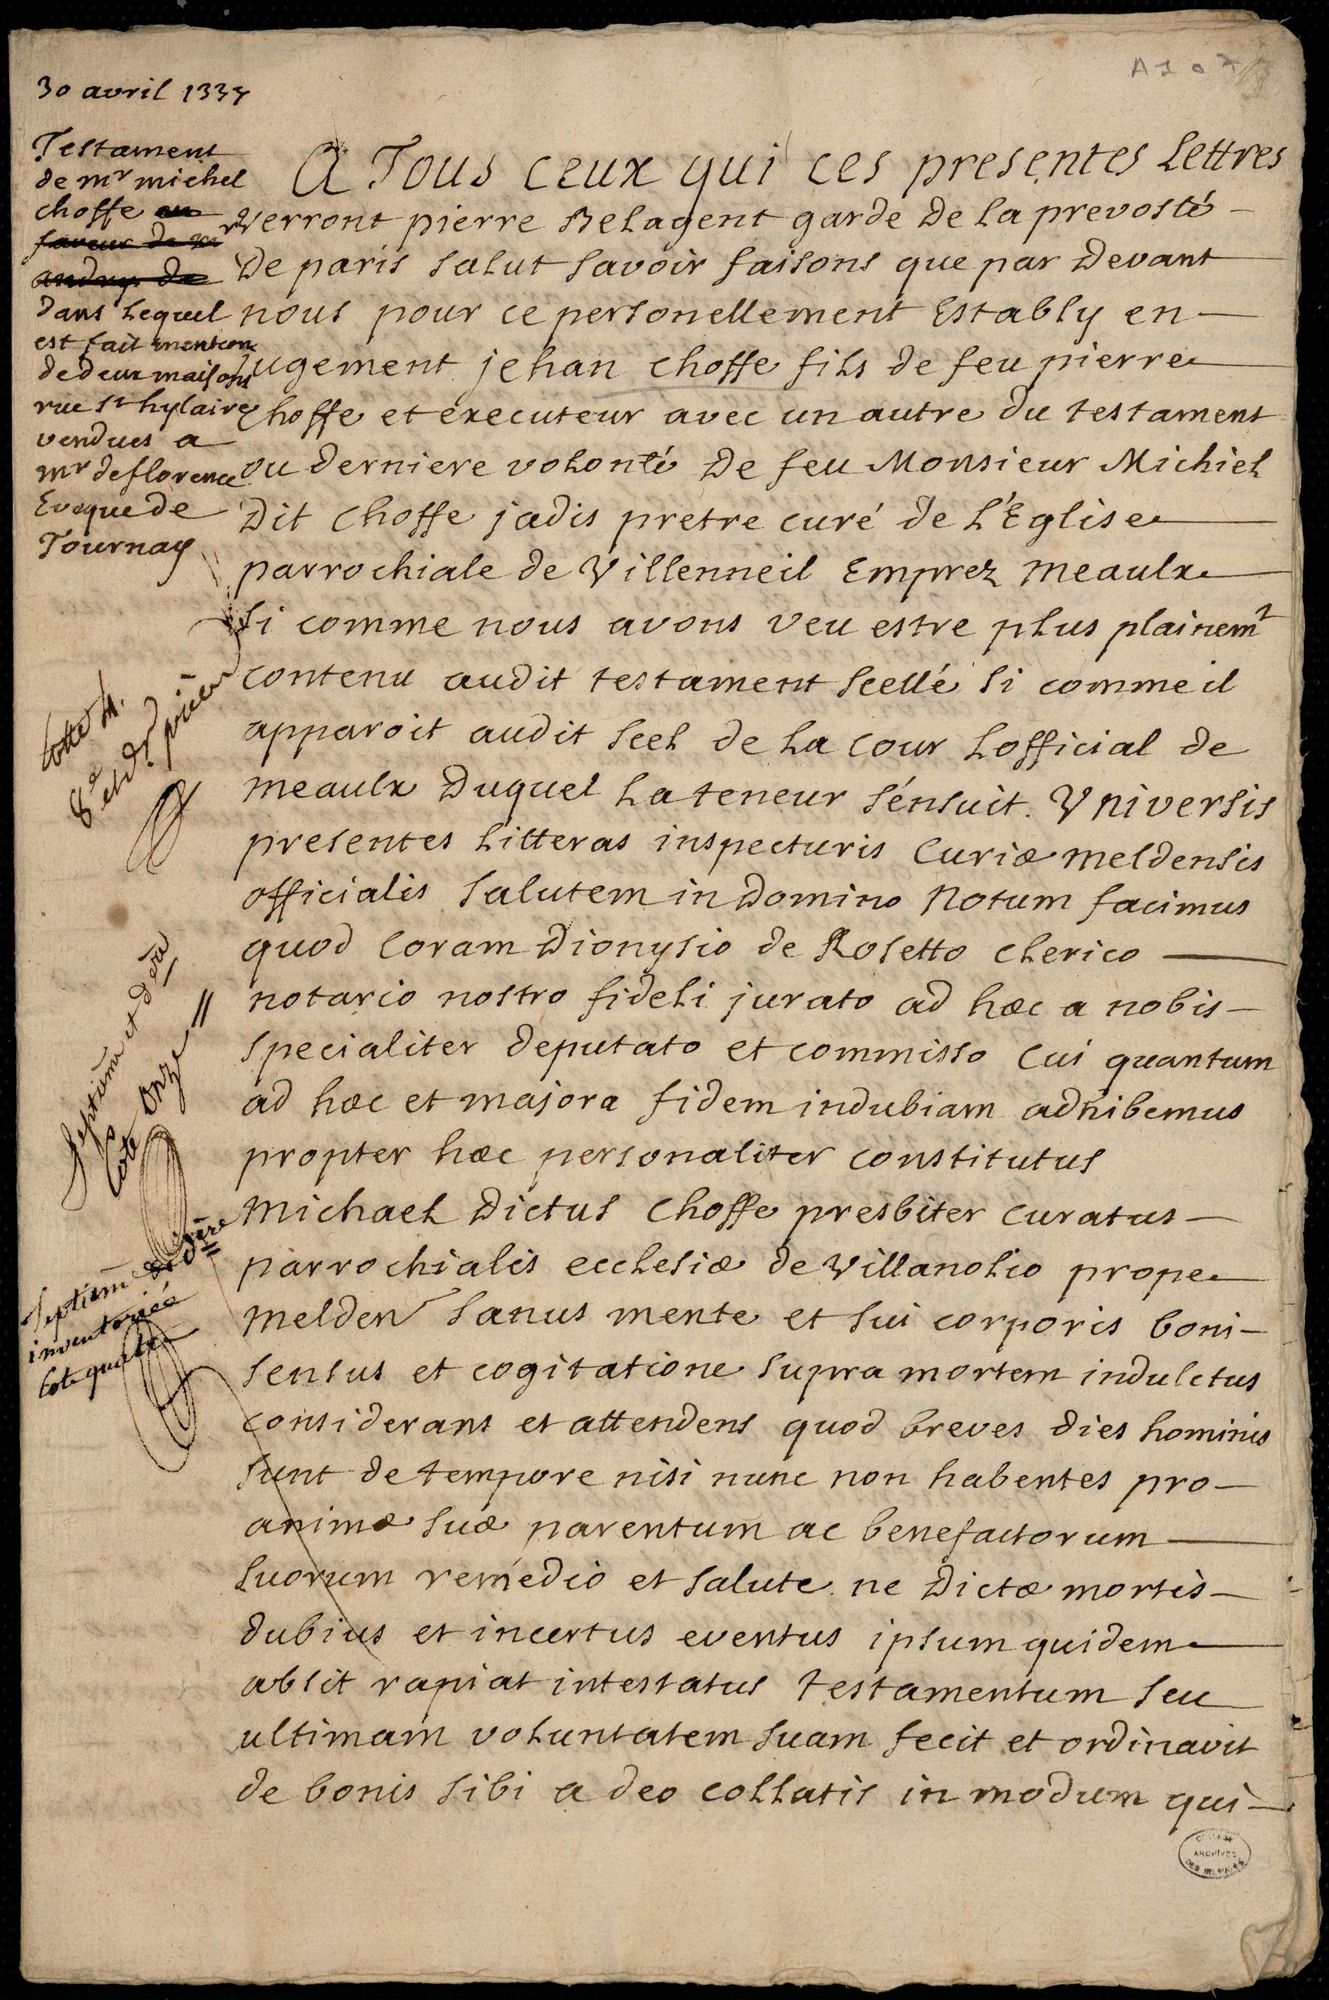 30 avril 1337
Testament
de mr michel
choffe en
faveur de mr
andry de
dans lequel
est fait mention
de deux maisons
rue st hylaire
vendues a
mr de florence
Eveque de
Tournay
A Tous ceux qui ces presentes Lettres
verront pierre Belagent garde de la prevosté
de paris salut savoir faisons que par devant
nous pour ce personellement Estably en
jugement jehan choffe fils de feu pierre
choffe et executeur avec un autre du testament
ou derniere volonté de feu Monsieur Michiel
dit choffe jadis pretre curé de L'Eglise
parrochiale de Villenneil Emprez meaulx
si comme nous avons veu estre plus plainemt
contenu audit testament scellé si comme il
apparoit audit scel de la cour Lofficial de
meaulx duquel la teneur sénsuit. Universis
presentes litteras inspecturis Curiæ meldensis
officialis salutem in domino Notum facimus
quod coram Dionysio de Rosetto clerico
notario nostro fideli jurato ad hæc a nobis
specialiter deputato et commisso cui quantum
ad hæc et majora fidem indubiam adhibemus
propter hæc personaliter constitutus
Michael dictus choffe presbiter curatus
parrochialis ecclesiæ de Villanolio prope
melden sanus mente et sui corporis boni
sensus et cogitatione supra mortem inductus
considerans et attendens quod breves dies hominis
sunt de tempore nisi nunc non habentes pro
animæ suæ parentum ac benefactorum
suorum remedio et salute ne dictæ mortis
dubius et incertus eventus ipsum quidem
absit rapiat intestatus testamentum seu
ultimam voluntatem suam fecit et ordinavit
de bonis sibi a deo collatis in modum qui
Cotte
8e
Septiem et
Cote Onze
Septiem
inventoriée
Cote quatre
ARCHIVES